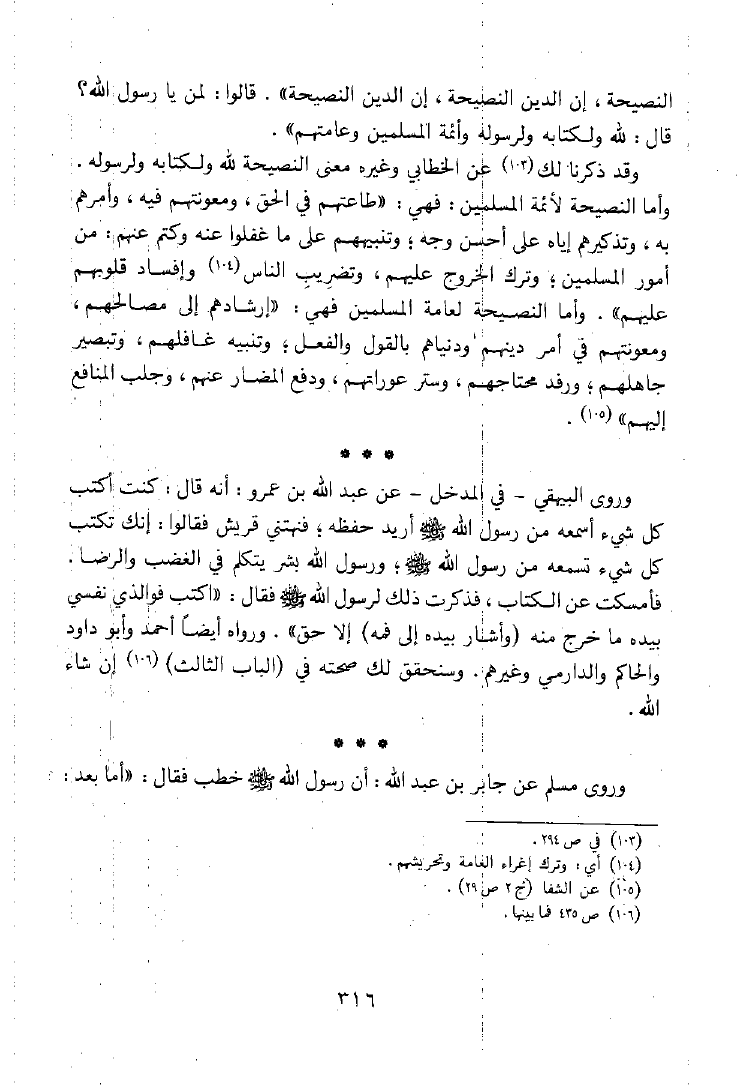 النصيحة ، إن الدين النصيحة ، إن الدين النصيحة» . قالوا : لمن يا رسول الله ؟
قال : لله ولكتابه ولرسوله وأئمة المسلمين وعامتهم» .
وقد ذكرنا لك (١٠٣) عن الخطابي وغيره معنى النصيحة لله ولكتابه ولرسوله .
وأما النصيحة لأئمة المسلمين : فهي : «طاعتهم في الحق ، ومعونتهم فيه ، وأمرهم
به ، وتذكيرهم إياه على أحسن وجه ؛ وتنبيههم على ما غفلوا عنه وكتم عنهم : من
أمور المسلمين ؛ وترك الخروج عليهم ، وتضريب الناس (١٠٤) وإفساد قلوبهم
عليهم» . وأما النصيحة لعامة المسلمين فهي : «إرشادهم إلى مصالحهم ،
ومعونتهم في أمر دينهم ودنياهم بالقول والفعل ؛ وتنبيه غافلهم ، وتبصير
جاهلهم ؛ ورفد محتاجهم ، وستر عوراتهم ، ودفع المضار عنهم ، وجلب المنافع
إليهم» (١٠٥) .
* * *
وروى البيهقي - في المدخل - عن عبد الله بن عمرو : أنه قال : كنت أكتب
كل شيء أسمعه من رسول الله ﷺ أريد حفظه ؛ فنهتني قريش فقالوا : إنك تكتب
كل شيء تسمعه من رسول الله ﷺ ؛ ورسول الله بشر يتكلم في الغضب والرضا .
فأمسكت عن الكتاب ، فذكرت ذلك لرسول الله ﷺ فقال : «اكتب فوالذي نفسي
بيده ما خرج منه (وأشار بيده إلى فمه) إلا حق» . ورواه أيضاً أحمد وأبو داود
والحاكم والدارمي وغيرهم . وسنحقق لك صحته في (الباب الثالث) (١٠٦) إن شاء
الله .
* * *
وروى مسلم عن جابر بن عبد الله : أن رسول الله ﷺ خطب فقال : «أما بعد :
(١٠٣) في ص ٢٩٤ .
(١٠٤) أي : وترك إغراء العامة وتحريشهم .
(١٠٥) عن الشفا (ج ٢ ص ٢٩) .
(١٠٦) ص ٤٣٥ فما بينها .
٣١٦